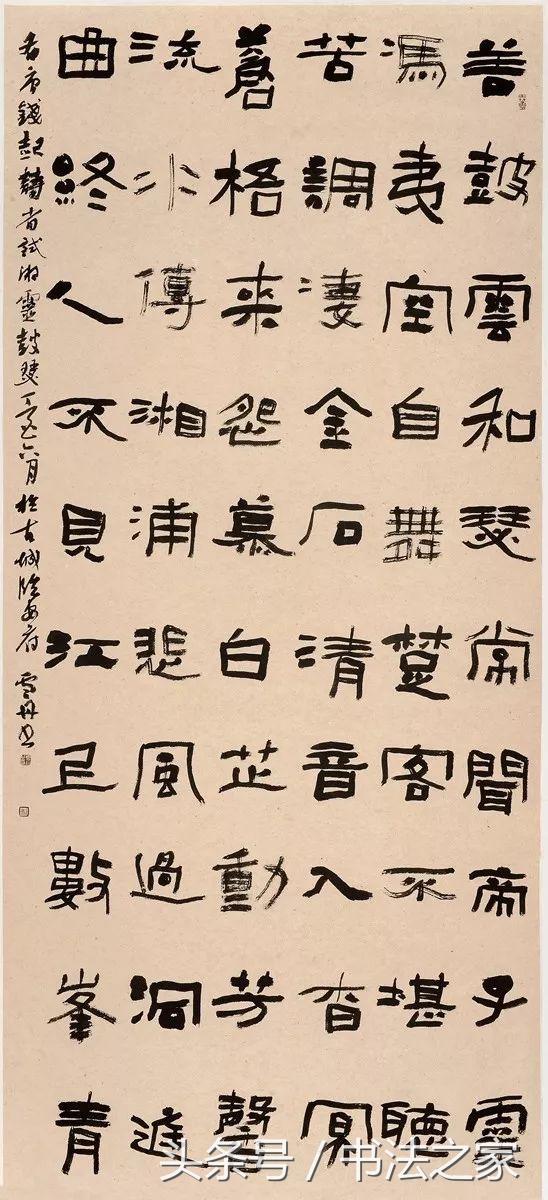 善鼓雲和瑟常聞帝子靈
馮夷空自舞楚客不堪聽
苦調淒金石清音入杳冥
蒼格来怨慕白芷動芳馨
流水傳湘浦悲風過洞庭
曲終人不見江上數峯青
唐錢起詩省試湘靈鼓瑟六月於古城臨安府
头条号 / 书法之家